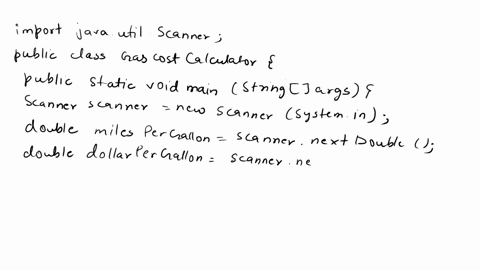 import java.util Scanner;
public class Gas cost Calculator {
public static void main (String[] args) {
Scanner scanner = new Scanner (System.in);
double miles Per Gallon = scanner.next Double ();
double dollar Per Gallon = scanner.ne